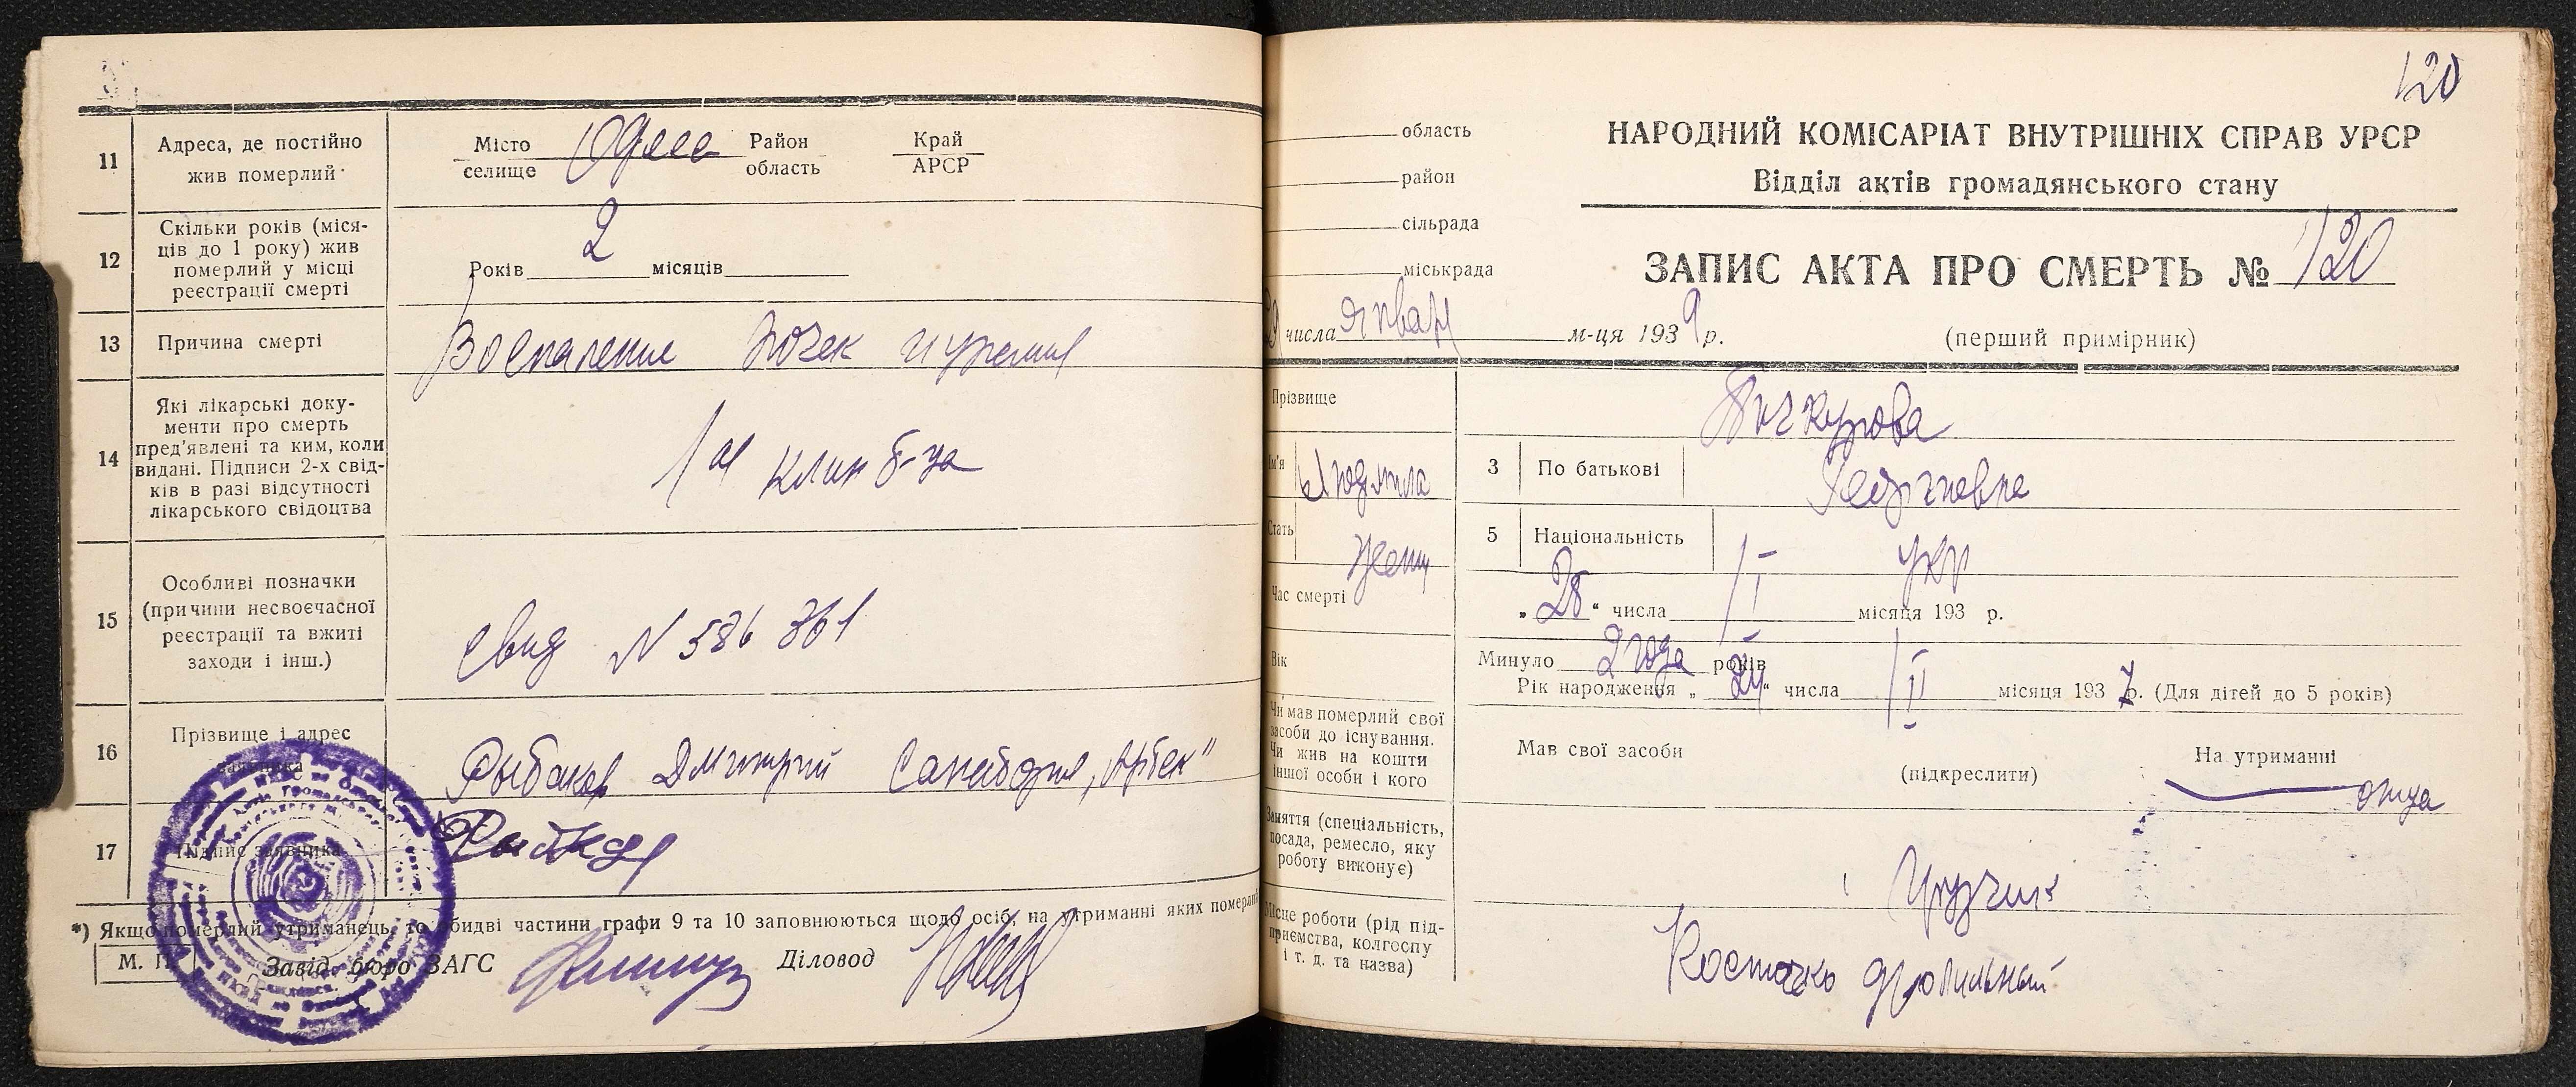 11
Адреса, де постійно
жив померлий
Місто
селище
Одесса
Район
область
Край
АРСР
12
Скільки років (міся-
ців до 1 року) жив
померлий у місці
реєстрації смерті
Років 2 місяців
13
Причина смерті
Воспаление почек уремия
14
Які лікарські доку-
менти про смерть
пред'явлені та ким, коли
видані. Підписи 2-х свід-
ків в разі відсутності
лікарського свідоцтва
1ая клин б-ца
15
Особливі позначки
(причини несвоєчасної
реєстрації та вжиті
заходи і інш.)
Свид N 586 361
16
Прізвище і адрес
заявника
Рыбаков Дмитрий "Артек"
17
Підпис заявника
*) Якщо померлий утриманець, то обидві частини графи 9 та 10 заповнюються щодо осіб, на утриманні яких померлий
М. П.
Завід. бюро ЗАГС
Діловод
120
область
район
сільрада
міськрада
НАРОДНИЙ КОМІСАРІАТ ВНУТРІШНІХ СПРАВ УРСР
Відділ актів громадянського стану
ЗАПИС АКТА ПРО СМЕРТЬ № 120
29 числа январ м-ця 1939 р.
(перший примірник)
Прізвище
Пичкурова
Ім'я
Людмила
3
По батькові
Георгиевна
Стать
женщ
5
Національність
укр
Час смерті
„ 28 “ числа I місяця 193 р.
Вік
Минуло 2 года років
Рік народження „ 24 “ числа II місяця 1937 р. (Для дітей до 5 років)
Чи мав померлий свої
засоби до існування.
Чи жив на кошти
іншої особи і кого
Мав свої засоби
(підкреслити)
На утриманні
отца
Заняття (спеціальність,
посада, ремесло, яку
роботу виконує)
Грузчик
Місце роботи (рід під-
приємства, колгоспу
і т. д. та назва)
Костечко дробильный